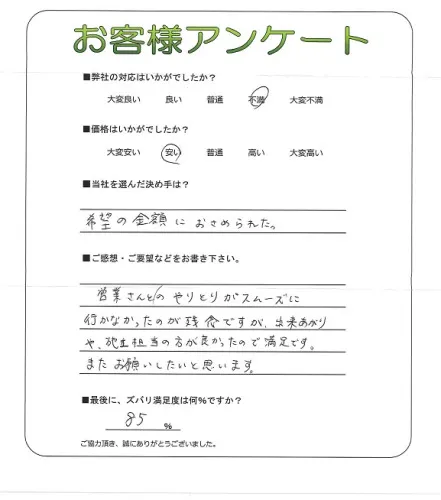 お客様アンケート
■弊社の対応はいかがでしたか？
大変良い 良い 普通 不満 大変不満
■価格はいかがでしたか？
大変安い 安い 普通 高い 大変高い
■当社を選んだ決め手は？
希望の金額におさめられた。
■ご感想・ご要望などをお書き下さい。
営業さんとのやりとりがスムーズに
行かなかったのが残念ですが、出来あがり
や、現場担当の方が良かったので満足です。
またお願いしたいと思います。
■最後に、ズバリ満足度は何％ですか？
85 ％
ご協力頂き、誠にありがとうございました。